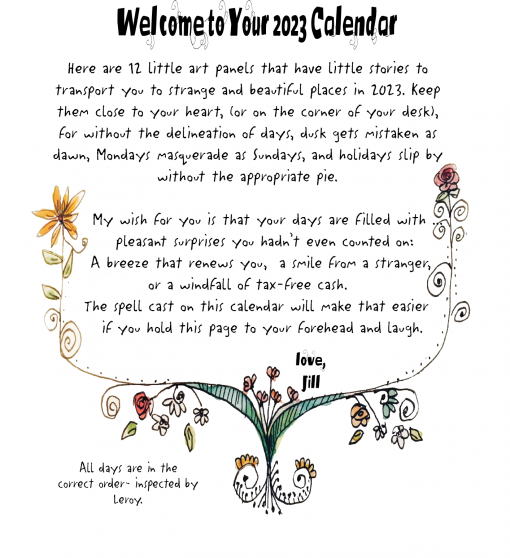 Welcome to Your 2023 Calendar
Here are 12 little art panels that have little stories to
transport you to strange and beautiful places in 2023. Keep
them close to your heart, (or on the corner of your desk),
for without the delineation of days, dusk gets mistaken as
dawn, Mondays masquerade as Sundays, and holidays slip by
without the appropriate pie.
My wish for you is that your days are filled with
pleasant surprises you hadn't even counted on:
A breeze that renews you, a smile from a stranger,
or a windfall of tax-free cash.
The spell cast on this calendar will make that easier
if you hold this page to your forehead and laugh.
love,
Jill
All days are in the
correct order- inspected by
Leroy.